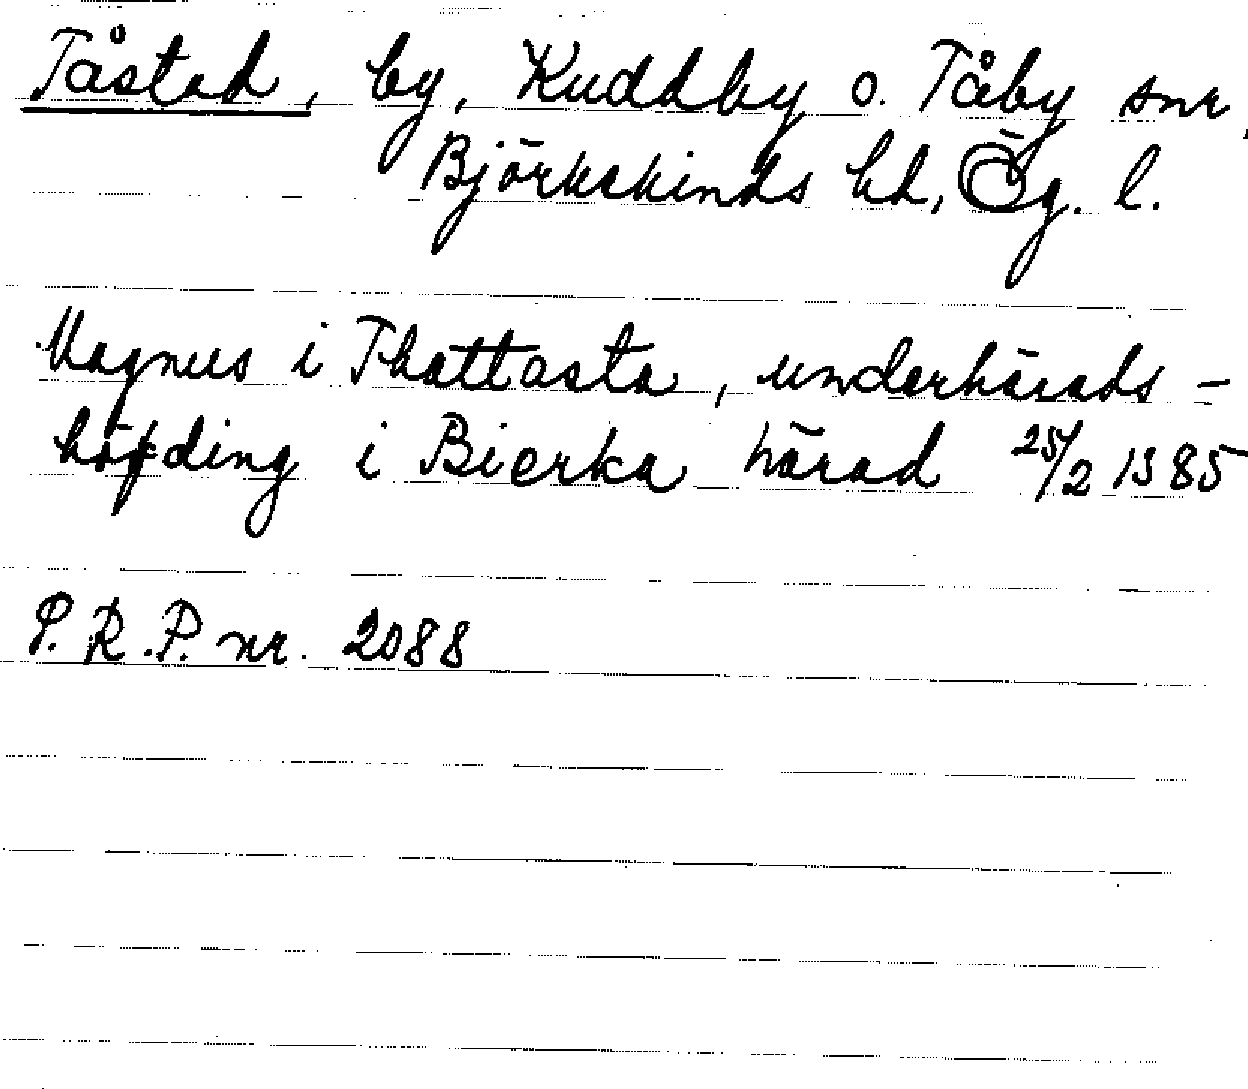 Tåstad, by, Kuddby o. Tåby snr,
Björkekinds hd, Ög. l.
Magnus i Thattasta, underhärads-
höfding i Bierka härad 25/2 1385
P. R. P. nr. 2088